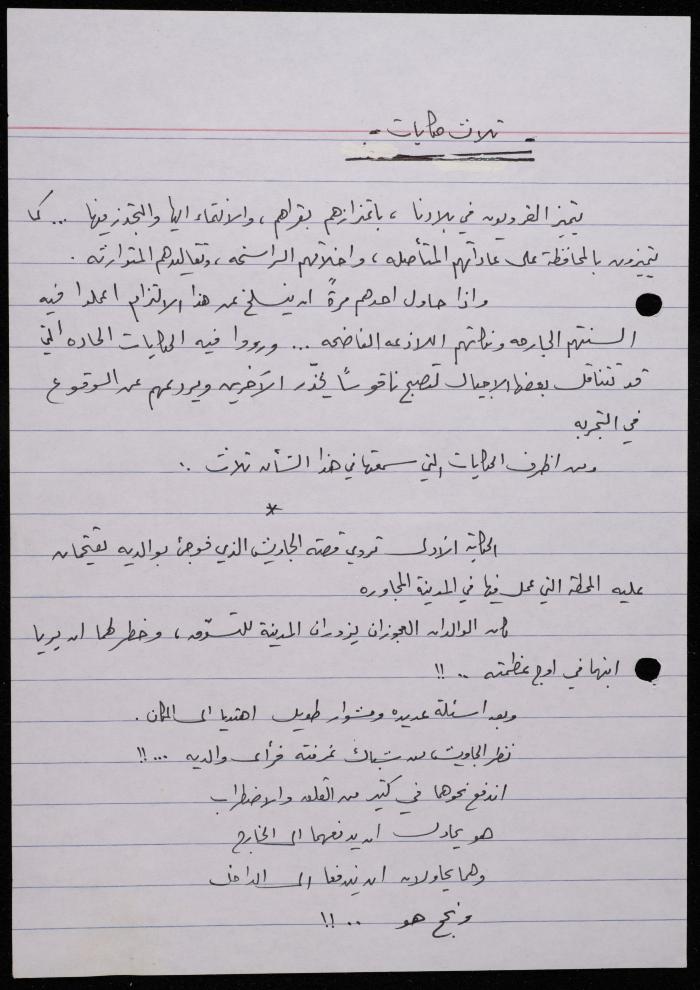 - ثلاث حكايات -
يتميز القرويون في بلادنا ، باعتزازهم بقراهم ، والانتماء اليها والتجذر فيها ... كما
يتميزون بالمحافظة على عاداتهم المتأصله ، واخلاقهم الراسخه ، وتقاليدهم المتوارثه .
واذا حاول احدهم مرةً ان ينسلخ عن هذا الالتزام اعملوا فيه
السنتهم الجارحه ونكاتهم اللاذعه الفاضحه ... ورووا فيه الحكايات الحاده التي
قد تتناقل بعضها الاجيال لتصبح ناقوسًا يحذّر الآخرين ويردعهم عن الوقوع
في التجربه
ومن اظرف الحكايات التي سمعتها في هذا الشأن ثلاث :
*
الحكاية الاولى تروي قصة الجاويش الذي فوجئ بوالديه يقتحمان
عليه المحطة التي عمل فيها في المدينة المجاوره
كان الوالدان العجوزان يزوران المدينة للتسوّق ، وخطر لهما ان يريا
ابنهما في اوج عظمته .. !!
وبعد اسئلة عديده ومشوار طويل اهتديا الى المكان .
نظر الجاويش من شباك غرفته فرأى والديه ... !!
اندفع نحوهما في كثير من القلق والاضطراب
هو يحاول ان يدفعهما الى الخارج
وهما يحاولان ان يندفعا الى الداخل
ونجح هو .. !!